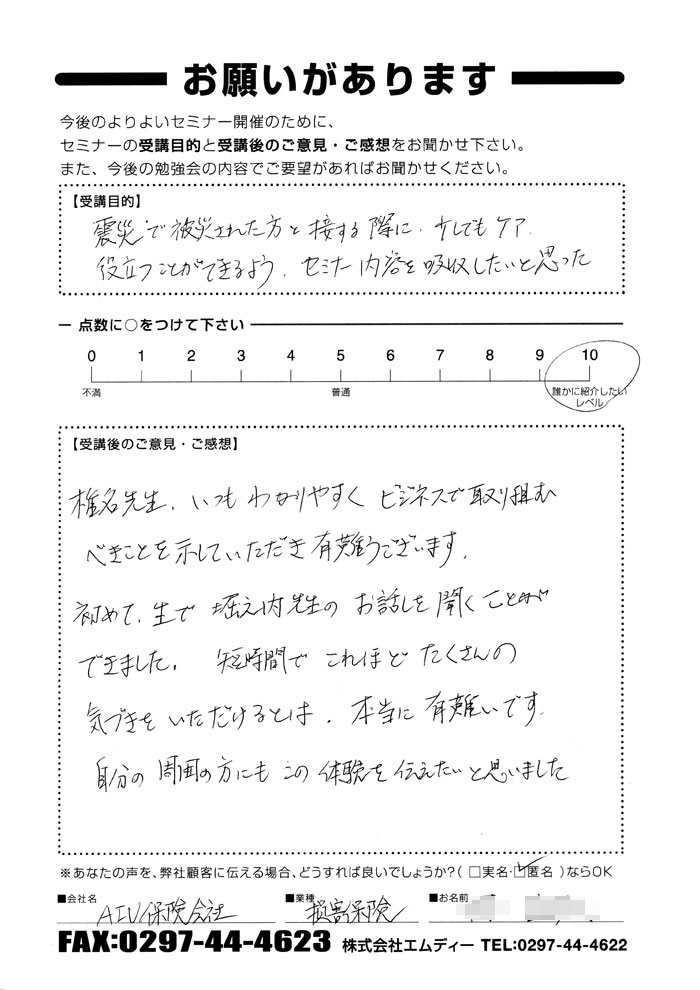 お願いがあります
今後のよりよいセミナー開催のために、
セミナーの受講目的と受講後のご意見・ご感想をお聞かせ下さい。
また、今後の勉強会の内容でご要望があればお聞かせください。
【受講目的】
震災で被災された方と接する際に、少しでもケア、
役立つことができるよう、セミナー内容を吸収したいと思った
点数に○をつけて下さい
0 1 2 3 4 5 6 7 8 9 10
不満 普通 誰かに紹介したい
レベル
【受講後のご意見・ご感想】
椎名先生、いつもわかりやすくビジネスで取り組む
べきことを示していただき有難うございます。
初めて、生で堀之内先生のお話しを聞くことが
できました。短時間でこれほどたくさんの
気づきをいただけるとは、本当に有難いです。
自分の周囲の方にもこの体験を伝えたいと思いました
※あなたの声を、弊社顧客に伝える場合、どうすれば良いでしょうか?(□実名・□匿名)ならOK
■会社名 AIU保険会社 ■業種 損害保険 ■お名前
FAX:0297-44-4623 株式会社エムディー TEL:0297-44-4622